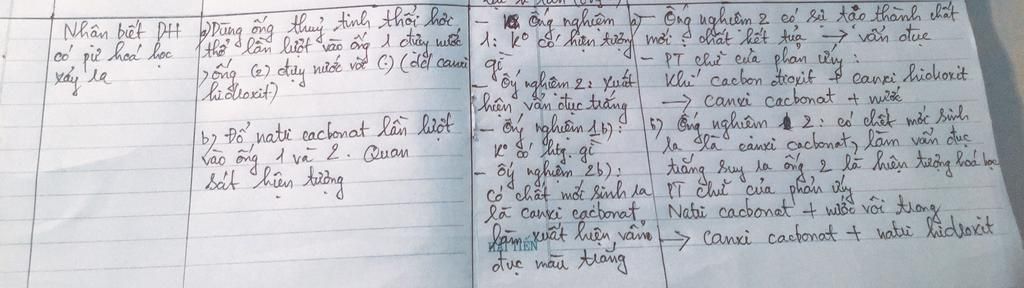 Nhân biết PH
có pứ hoá học
xảy ra
a) Dùng ống thuỷ tinh thổi hơi
thở lần lượt vào ống 1 đựng nước
, ống (2) đựng nước vôi (:) (dd canxi
hidroxit)
b) Đổ natri cacbonat lần lượt
vào ống 1 và 2. Quan
sát hiện tượng
- Ống nghiệm
1: Kº có hiện tượng
gì
- Ống nghiệm 2: Xuất
hiện vẩn đục trắng
- Ống nghiệm 1b):
Kº có htg. gì
- ống nghiệm 2b):
có chất mới sinh ra
là canxi cacbonat
làm xuất hiện vẩn
đục màu trắng
TIẾN
a) - Ống nghiệm 2 có sự tạo thành chất
mới : chất kết tủa → vẩn đục
- PT chữ của phản ứng :
Khí cacbon đioxit + canxi hidroxit
→ canxi cacbonat + nước
b) Ống nghiệm 2: có chất mới sinh
ra là canxi cacbonat, làm vẩn đục
trắng suy ra ống 2 là hiện tượng hoá học
PT chữ của phản ứng
Natri cacbonat + nước vôi trong
→ canxi cacbonat + natri hidroxit